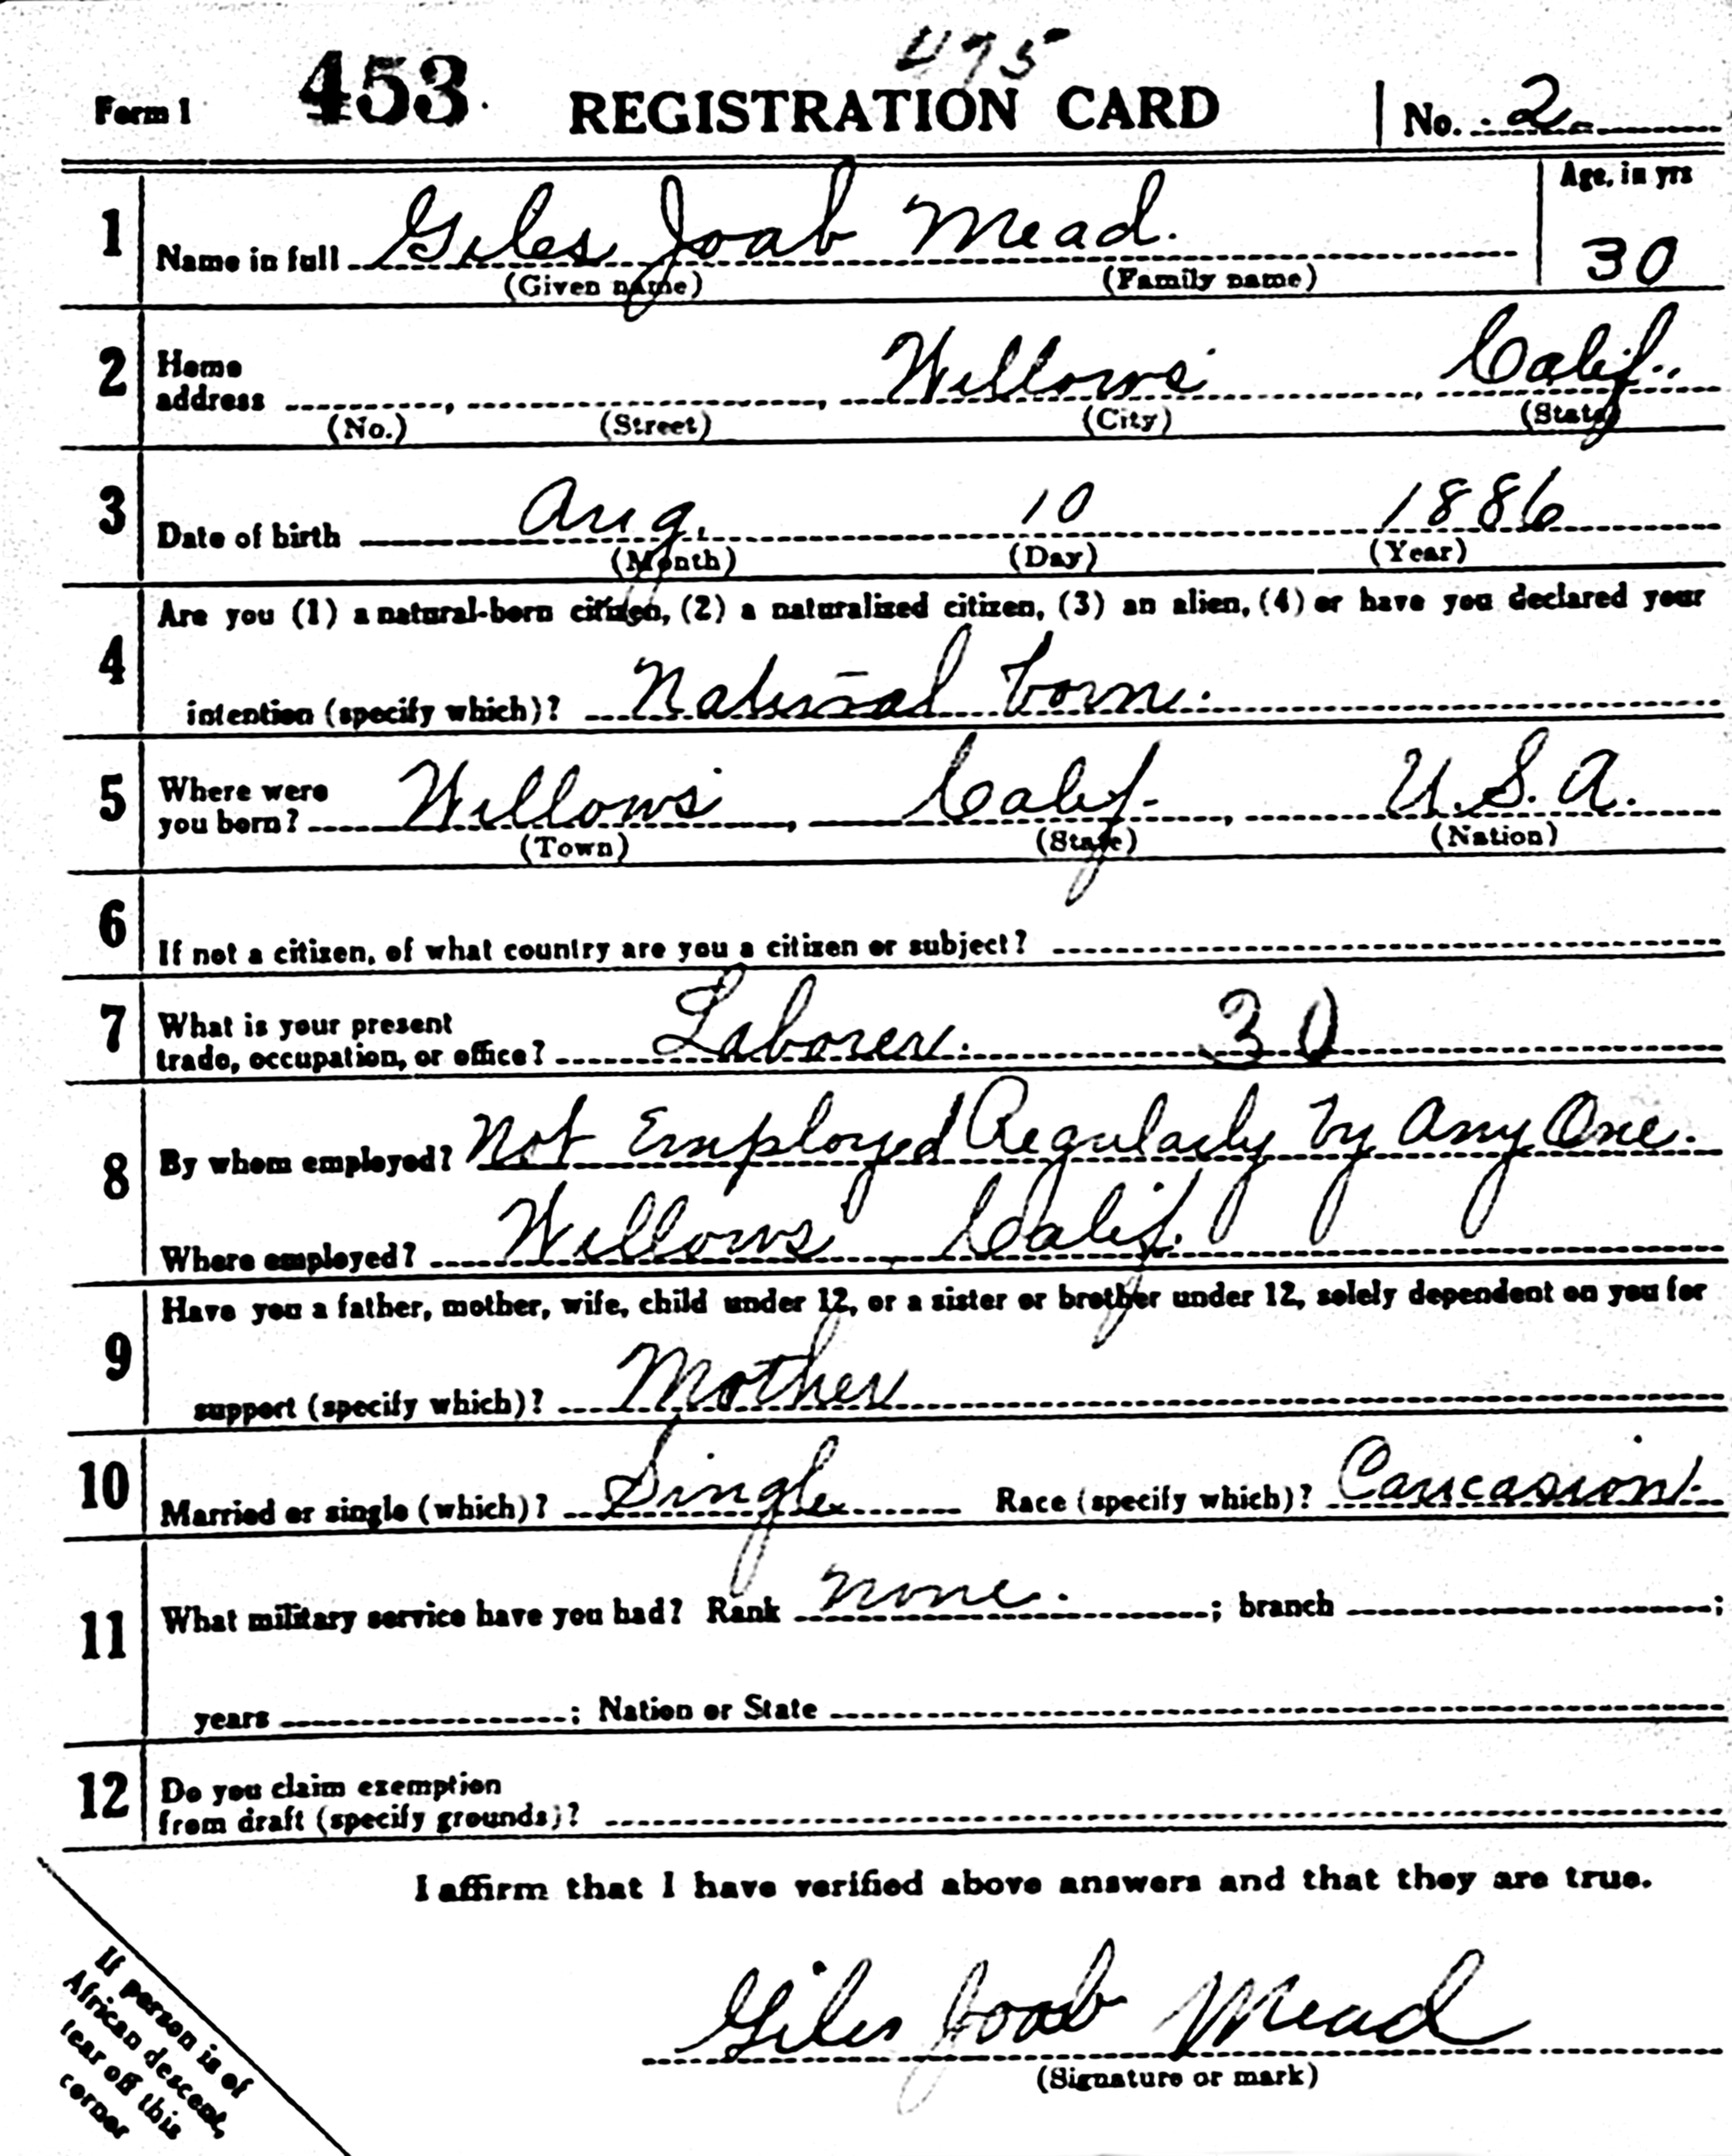 475
Form 1 453 REGISTRATION CARD No. 2
Age, in yrs
1 Name in full Giles Joab Mead. 30
(Given name) (Family name)
2 Home
address Willows, Calif.
(No.) (Street) (City) (State)
3 Date of birth Aug. 10 1886
(Month) (Day) (Year)
Are you (1) a natural-born citizen, (2) a naturalized citizen, (3) an alien, (4) or have you declared your
4 intention (specify which)? Natural born.
5 Where were
you born? Willows, Calif., U.S.A.
(Town) (State) (Nation)
6 If not a citizen, of what country are you a citizen or subject?
7 What is your present
trade, occupation, or office? Laborer. 30
8 By whom employed? Not Employed Regularly by Any One.
Where employed? Willows Calif.
Have you a father, mother, wife, child under 12, or a sister or brother under 12, solely dependent on you for
9 support (specify which)? Mother
10 Married or single (which)? Single Race (specify which)? Caucasion.
11 What military service have you had? Rank none. ; branch ;
years ; Nation or State
12 Do you claim exemption
from draft (specify grounds)?
I affirm that I have verified above answers and that they are true.
Giles Joab Mead
(Signature or mark)
If person is of
African descent,
tear off this
corner